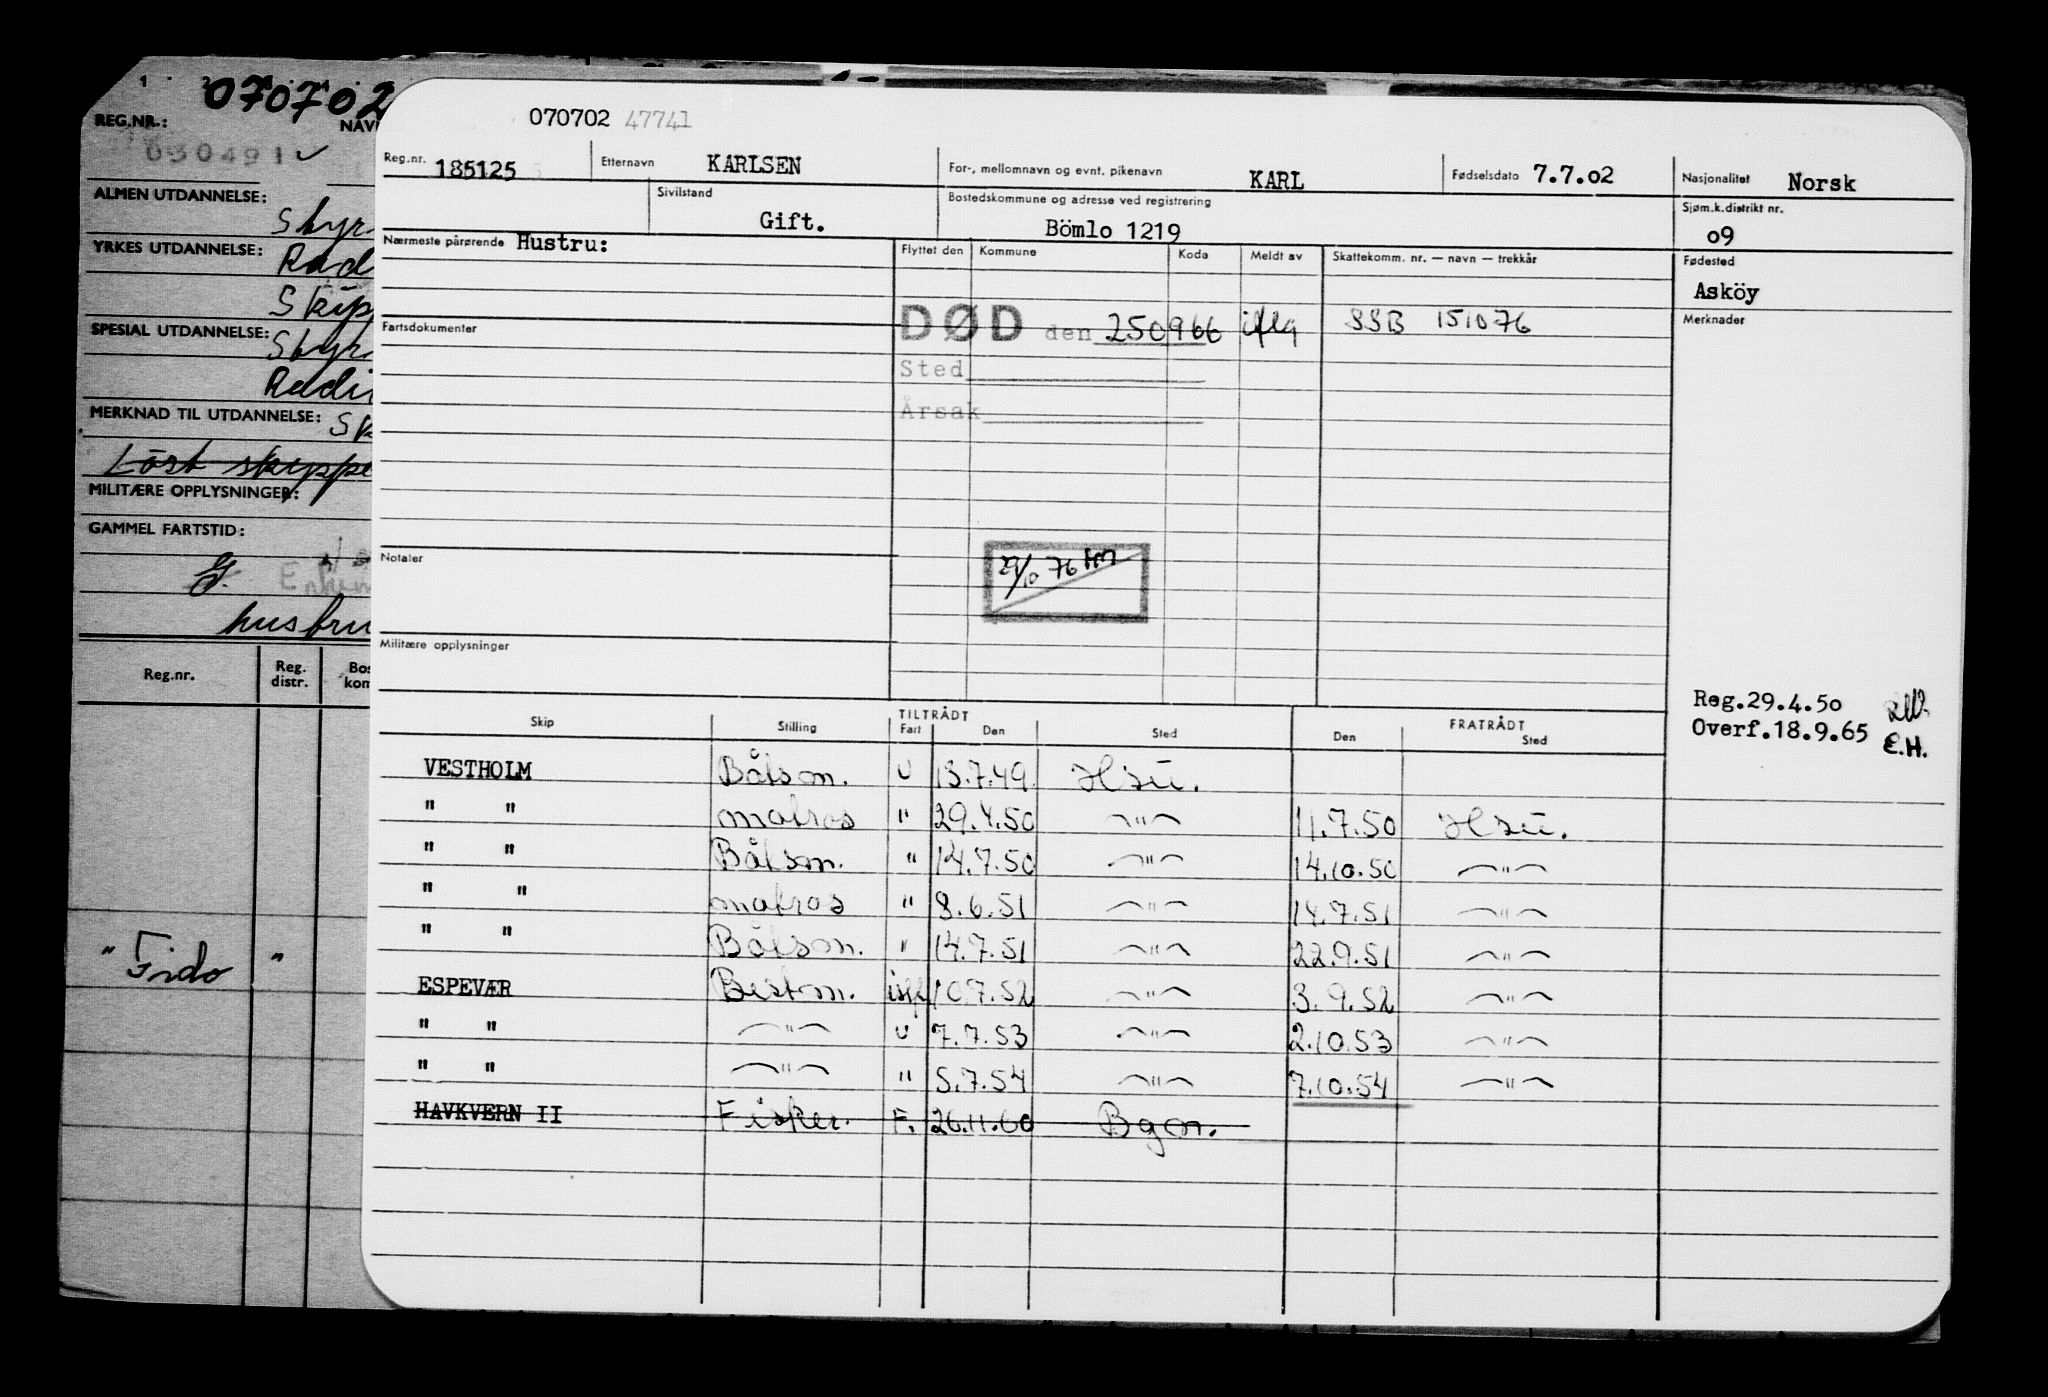 070702
REG.NR.:
030491 ✓
ALMEN UTDANNELSE:
YRKES UTDANNELSE:
SPESIAL UTDANNELSE:
MERKNAD TIL UTDANNELSE:
MILITÆRE OPPLYSNINGER:
GAMMEL FARTSTID:
hustru
Reg.nr. Reg. distr.
" Fido "
070702 47741
Reg.nr. 185125 Etternavn KARLSEN For-, mellomnavn og evnt. pikenavn KARL Fødselsdato 7.7.02 Nasjonalitet Norsk
Sivilstand Gift. Bostedskommune og adresse ved registrering Bömlo 1219 Sjøm.k.distrikt nr. 09
Nærmeste pårørende Hustru: Flyttet den Kommune Kode Meldt av Skattekomm. nr. — navn — trekkår Fødested
Asköy
Fartsdokumenter DØD den 250966 iflg SSB 151076 Merknader
Sted
Årsak
Notater 29/10 76 HM
Militære opplysninger
Reg.29.4.50
Overf.18.9.65 E.H.
Skip Stilling TILTRÅDT Fart Den Sted FRATRÅDT Den Sted
VESTHOLM Båtsm. U 13.7.49. Hsu.
" " matros " 29.4.50 —"— 11.7.50 Hsu.
" " Båtsm. " 14.7.50 —"— 14.10.50 —"—
" " matros " 8.6.51 —"— 14.7.51 —"—
" " Båtsm. " 14.7.51 —"— 22.9.51 —"—
ESPEVÆR Bestm. isf. 10.7.52 —"— 3.9.52 —"—
" " —"— U 7.7.53 —"— 2.10.53 —"—
" " —"— " 5.7.54 —"— 7.10.54 —"—
HAVKVERN II Fisker. F. 26.11.60 Bgn.